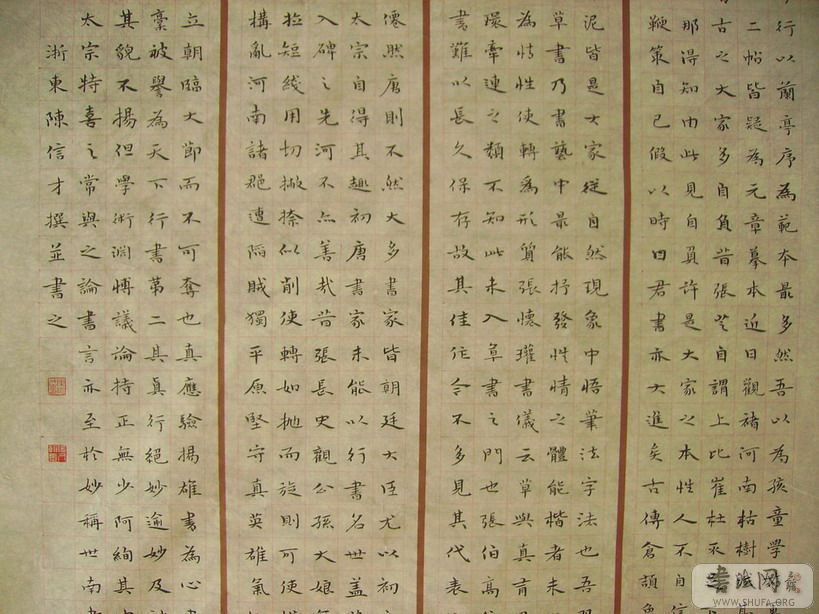 行以蘭亭序為範本最多然吾以為孩童學
二帖皆題為元章摹本近日觀褚河南枯樹
古之大家多自負昔張芝自謂上比崔杜不
那得知由此見自負許是大家之本性人不自信
鞭策自己假以時日君書亦大進矣古傳倉頡
泥皆是大家從自然現象中悟筆法字法也吾
草書乃書藝中最能抒發性情之體能楷者未
為情性使轉為形質張懷瓘書儀云草與真有
環牽連之類不知此未入草書之門也張伯高
書難以長久保存故其佳作令不多見其代表
僊然唐則不然大多書家皆朝廷大臣尤以初
太宗自得其趣初唐書家未能以行書名世蓋
入碑之先河不亦善哉昔張長史觀公孫大娘
拉短綫用切撇捺似削使轉如拋而旋則可使
構亂河南諸郡遭陷賊獨平原堅守真英雄氣
立朝臨大節而不可奪也真應驗揚雄書為心
稾被譽為天下行書第二其真行絕妙逾妙及
其貌不揚但學術淵博議論持正無少阿絢其
太宗特喜之常與之論書言亦至於妙稱世南
浙東陳信才撰並書之
书法网
WWW.SHUFA.ORG